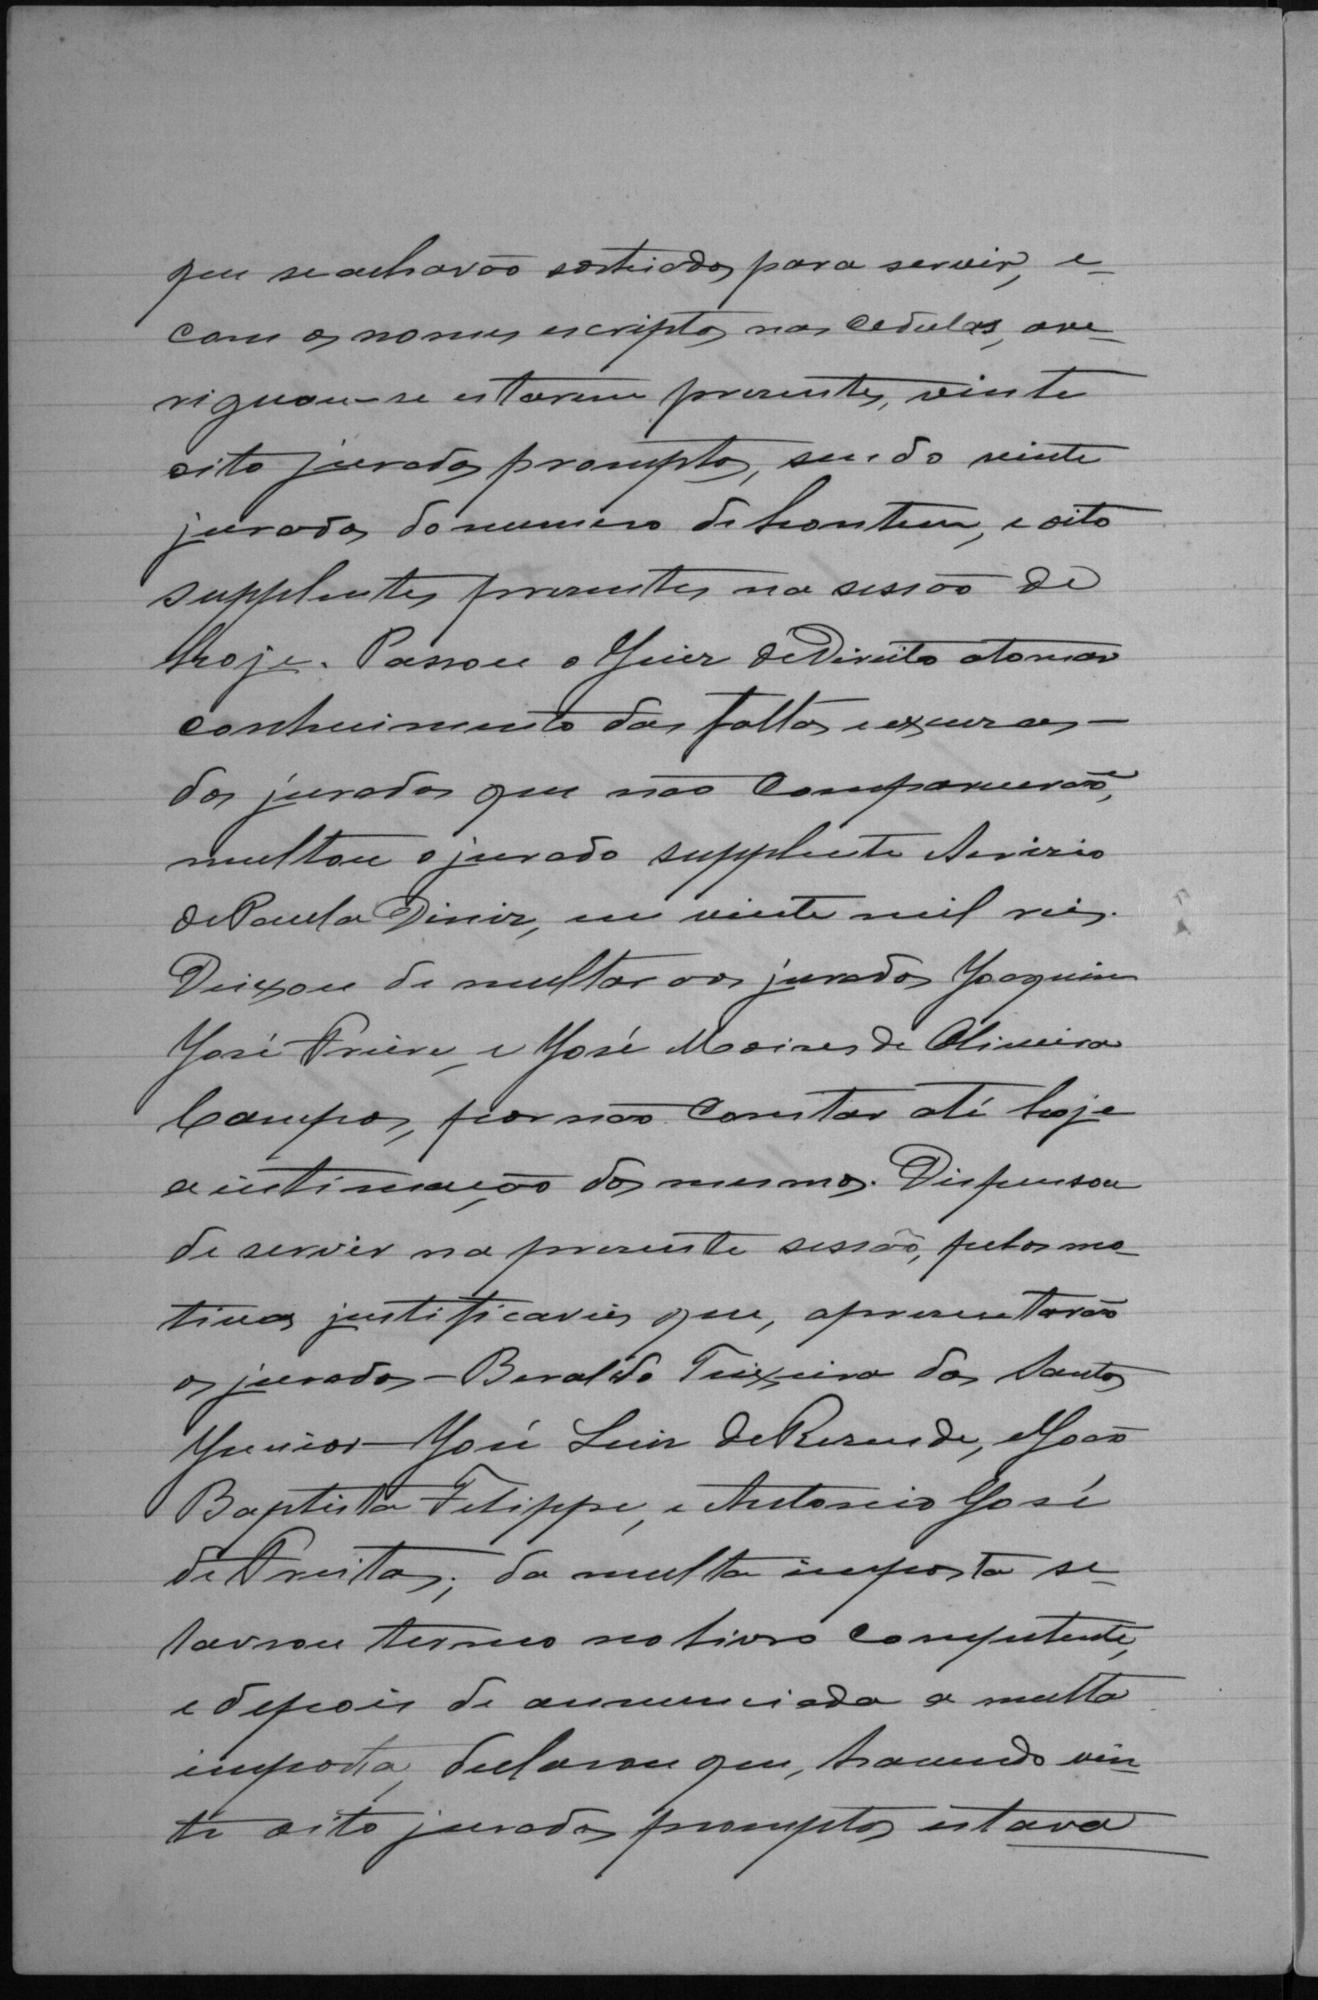 que se achavão sorteiados para servir, e-
com os nomes escriptos nas cedulas, ave-
riguou-se estarem presentes, vinte
oito jurados promptos, sendo vinte
jurados do numero de hontem, e oito
supplentes presentes na sessão de
hoje. Passou o Juiz de Direito a tomar
conhecimento das faltas e excusas -
dos jurados que não comparecerão,
multou o jurado supplente
de Paula Diniz, em vinte mil reis.
Deixou de multar aos jurados Joaquim
José Freire, e José Moises de Oliveira
Campos, por não constar até hoje
a intimação dos mesmos. Dispensou
de servir na presente sessão, pelos mo-
tivos justificaveis que, apresentarão
os jurados - Beraldo Teixeira dos Santos
Junior - José Luiz de Rezende, e João
Baptista Felippe, e Antonio José
de Freitas; da multa imposta se-
lavrou termo no livro competente,
e depois de annunciada a multa
imposta, declarou que, havendo vin-
te oito jurados promptos estava